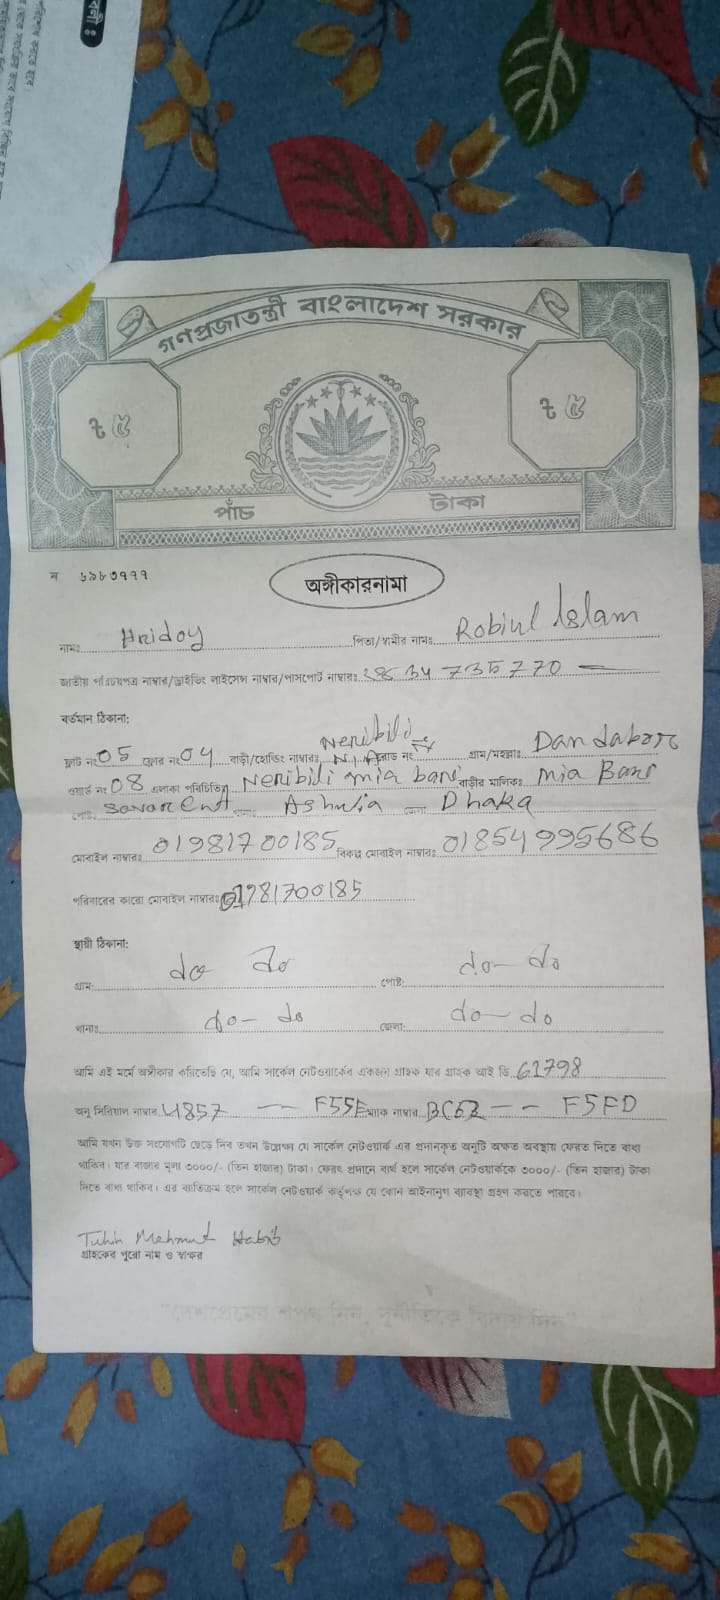 গণপ্রজাতন্ত্রী বাংলাদেশ সরকার
৳ ৫ ৳ ৫
পাঁচ টাকা
ন ৬৯৮৩৭৭৭
অঙ্গীকারনামা
নামঃ Hridoy পিতা/স্বামীর নামঃ Robiul Islam
জাতীয় পরিচয়পত্র নাম্বার/ড্রাইভিং লাইসেন্স নাম্বার/পাসপোর্ট নাম্বারঃ 34 735770
বর্তমান ঠিকানা:
ফ্লাট নং 05 ফ্লোর নং 04 বাড়ী/হোল্ডিং নাম্বারঃ Neribili রোড নং গ্রাম/মহল্লাঃ
ওয়ার্ড নং 08 এলাকা পরিচিতি Neribili mia bari বাড়ীর মালিকঃ mia Bari
পোষ্ট: থানাঃ Ashulia জেলা Dhaka
মোবাইল নাম্বারঃ 01981700185 বিকল্প মোবাইল নাম্বারঃ 01854995686
পরিবারের কারো মোবাইল নাম্বারঃ 01981700185
স্থায়ী ঠিকানা:
গ্রাম: do do পোষ্ট: do - do
থানাঃ do - do জেলা: do - do
আমি এই মর্মে অঙ্গীকার করিতেছি যে, আমি সার্কেল নেটওয়ার্কের একজন গ্রাহক যার গ্রাহক আই ডি 61798
অনু সিরিয়াল নাম্বার 4857 -- F55E ম্যাক নাম্বার -- F5FD
আমি যখন উক্ত সংযোগটি ছেড়ে দিব তখন উল্লেক্ষ্য যে সার্কেল নেটওয়ার্ক এর প্রদানকৃত অনুটি অক্ষত অবস্থায় ফেরত দিতে বাধ্য
থাকিব। যার বাজার মূল্য ৩০০০/- (তিন হাজার) টাকা। ফেরৎ প্রদানে ব্যর্থ হলে সার্কেল নেটওয়ার্ককে ৩০০০/- (তিন হাজার) টাকা
দিতে বাধ্য থাকিব। এর ব্যতিক্রম হলে সার্কেল নেটওয়ার্ক কর্তৃপক্ষ যে কোন আইনানুগ ব্যবস্থা গ্রহণ করতে পারবে।
Tuhin Mehmud Habib
গ্রাহকের পুরো নাম ও স্বাক্ষর